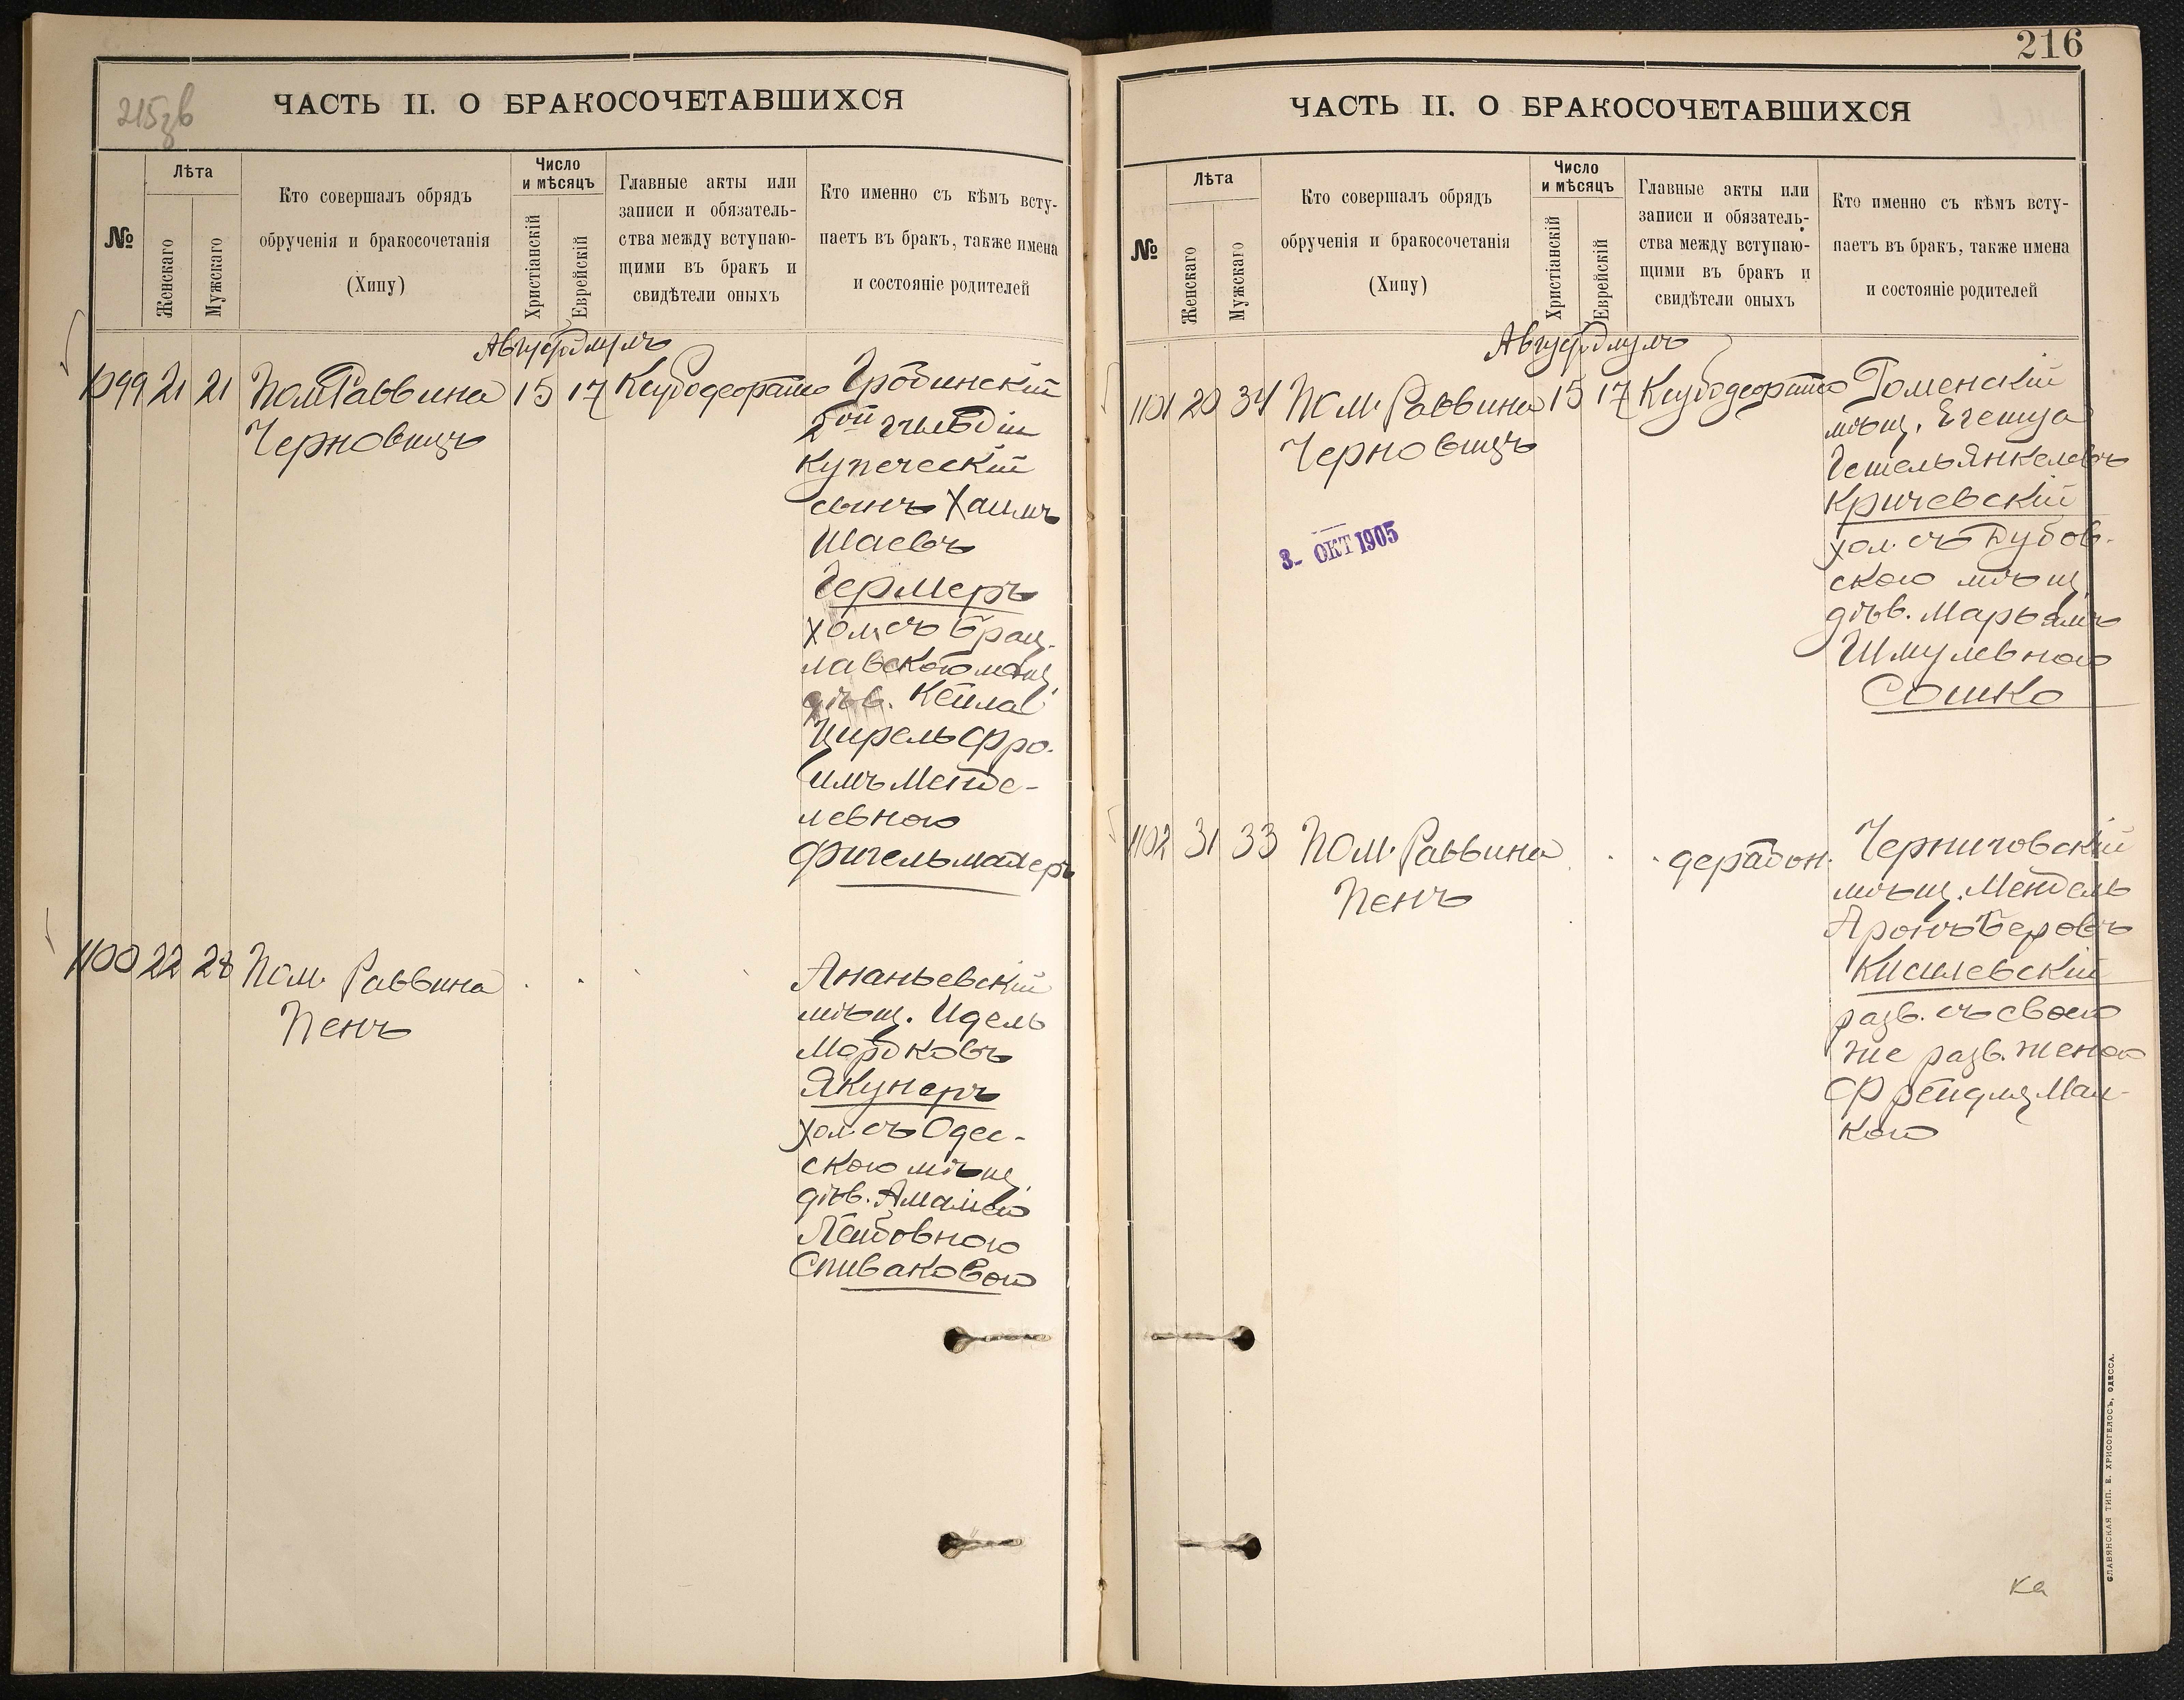 215зв
ЧАСТЬ II. О БРАКОСОЧЕТАВШИХСЯ
№
Лѣта
Женскаго
Мужскаго
Кто совершалъ обрядъ
обрученія и бракосочетанія
(Хипу)
Число
и мѣсяцъ
Христіанскій
Еврейскій
Главные акты или
записи и обязатель-
ства между вступаю-
щими въ бракъ и
свидѣтели оныхъ
Кто именно съ кѣмъ всту-
паетъ въ бракъ, также имена
и состояніе родителей
1099 21 21 Пом. Раввина 15 17
Черновицъ
Гробинскій
2ой гильдіи
купеческій
сынъ Хаимъ
Шаевъ
Гермеръ
хол. съ Брац-
лавскою мѣщ.
дѣв. Кейла
Цирель Фро-
имъ Менде-
левною
Фигельмахеръ
1100 22 28 Пом. Раввина
Пенъ
Ананьевскій
мѣщ. Идель
Мордковъ
Якунеръ
хол. съ Одес-
скою мѣщ.
дѣв.
Лейбовною
Спиваковою
216
ЧАСТЬ II. О БРАКОСОЧЕТАВШИХСЯ
№
Лѣта
Женскаго
Мужскаго
Кто совершалъ обрядъ
обрученія и бракосочетанія
(Хипу)
Число
и мѣсяцъ
Христіанскій
Еврейскій
Главные акты или
записи и обязатель-
ства между вступаю-
щими въ бракъ и
свидѣтели оныхъ
Кто именно съ кѣмъ всту-
паетъ въ бракъ, также имена
и состояніе родителей
1101 20 34 Пом. Раввина 15 17
Черновицъ
3- ОКТ 1905
Роменскій
мѣщ.
Гешель Янкелевъ
Кричевскій
хол. съ Дубов-
скою мѣщ.
дѣв. Марьямъ
Шмулевною
Сошко
1102 31 33 Пом. Раввина
Пенъ
дерабон.
Черниговскій
мѣщ. Мендель
Аронъ Беровъ
Кисилевскій
разв. съ своею
же разв. женою
Фрейдля Мал-
кою
СЛАВЯНСКАЯ ТИП. Е. ХРИСОГЕЛОСЪ, ОДЕССА.